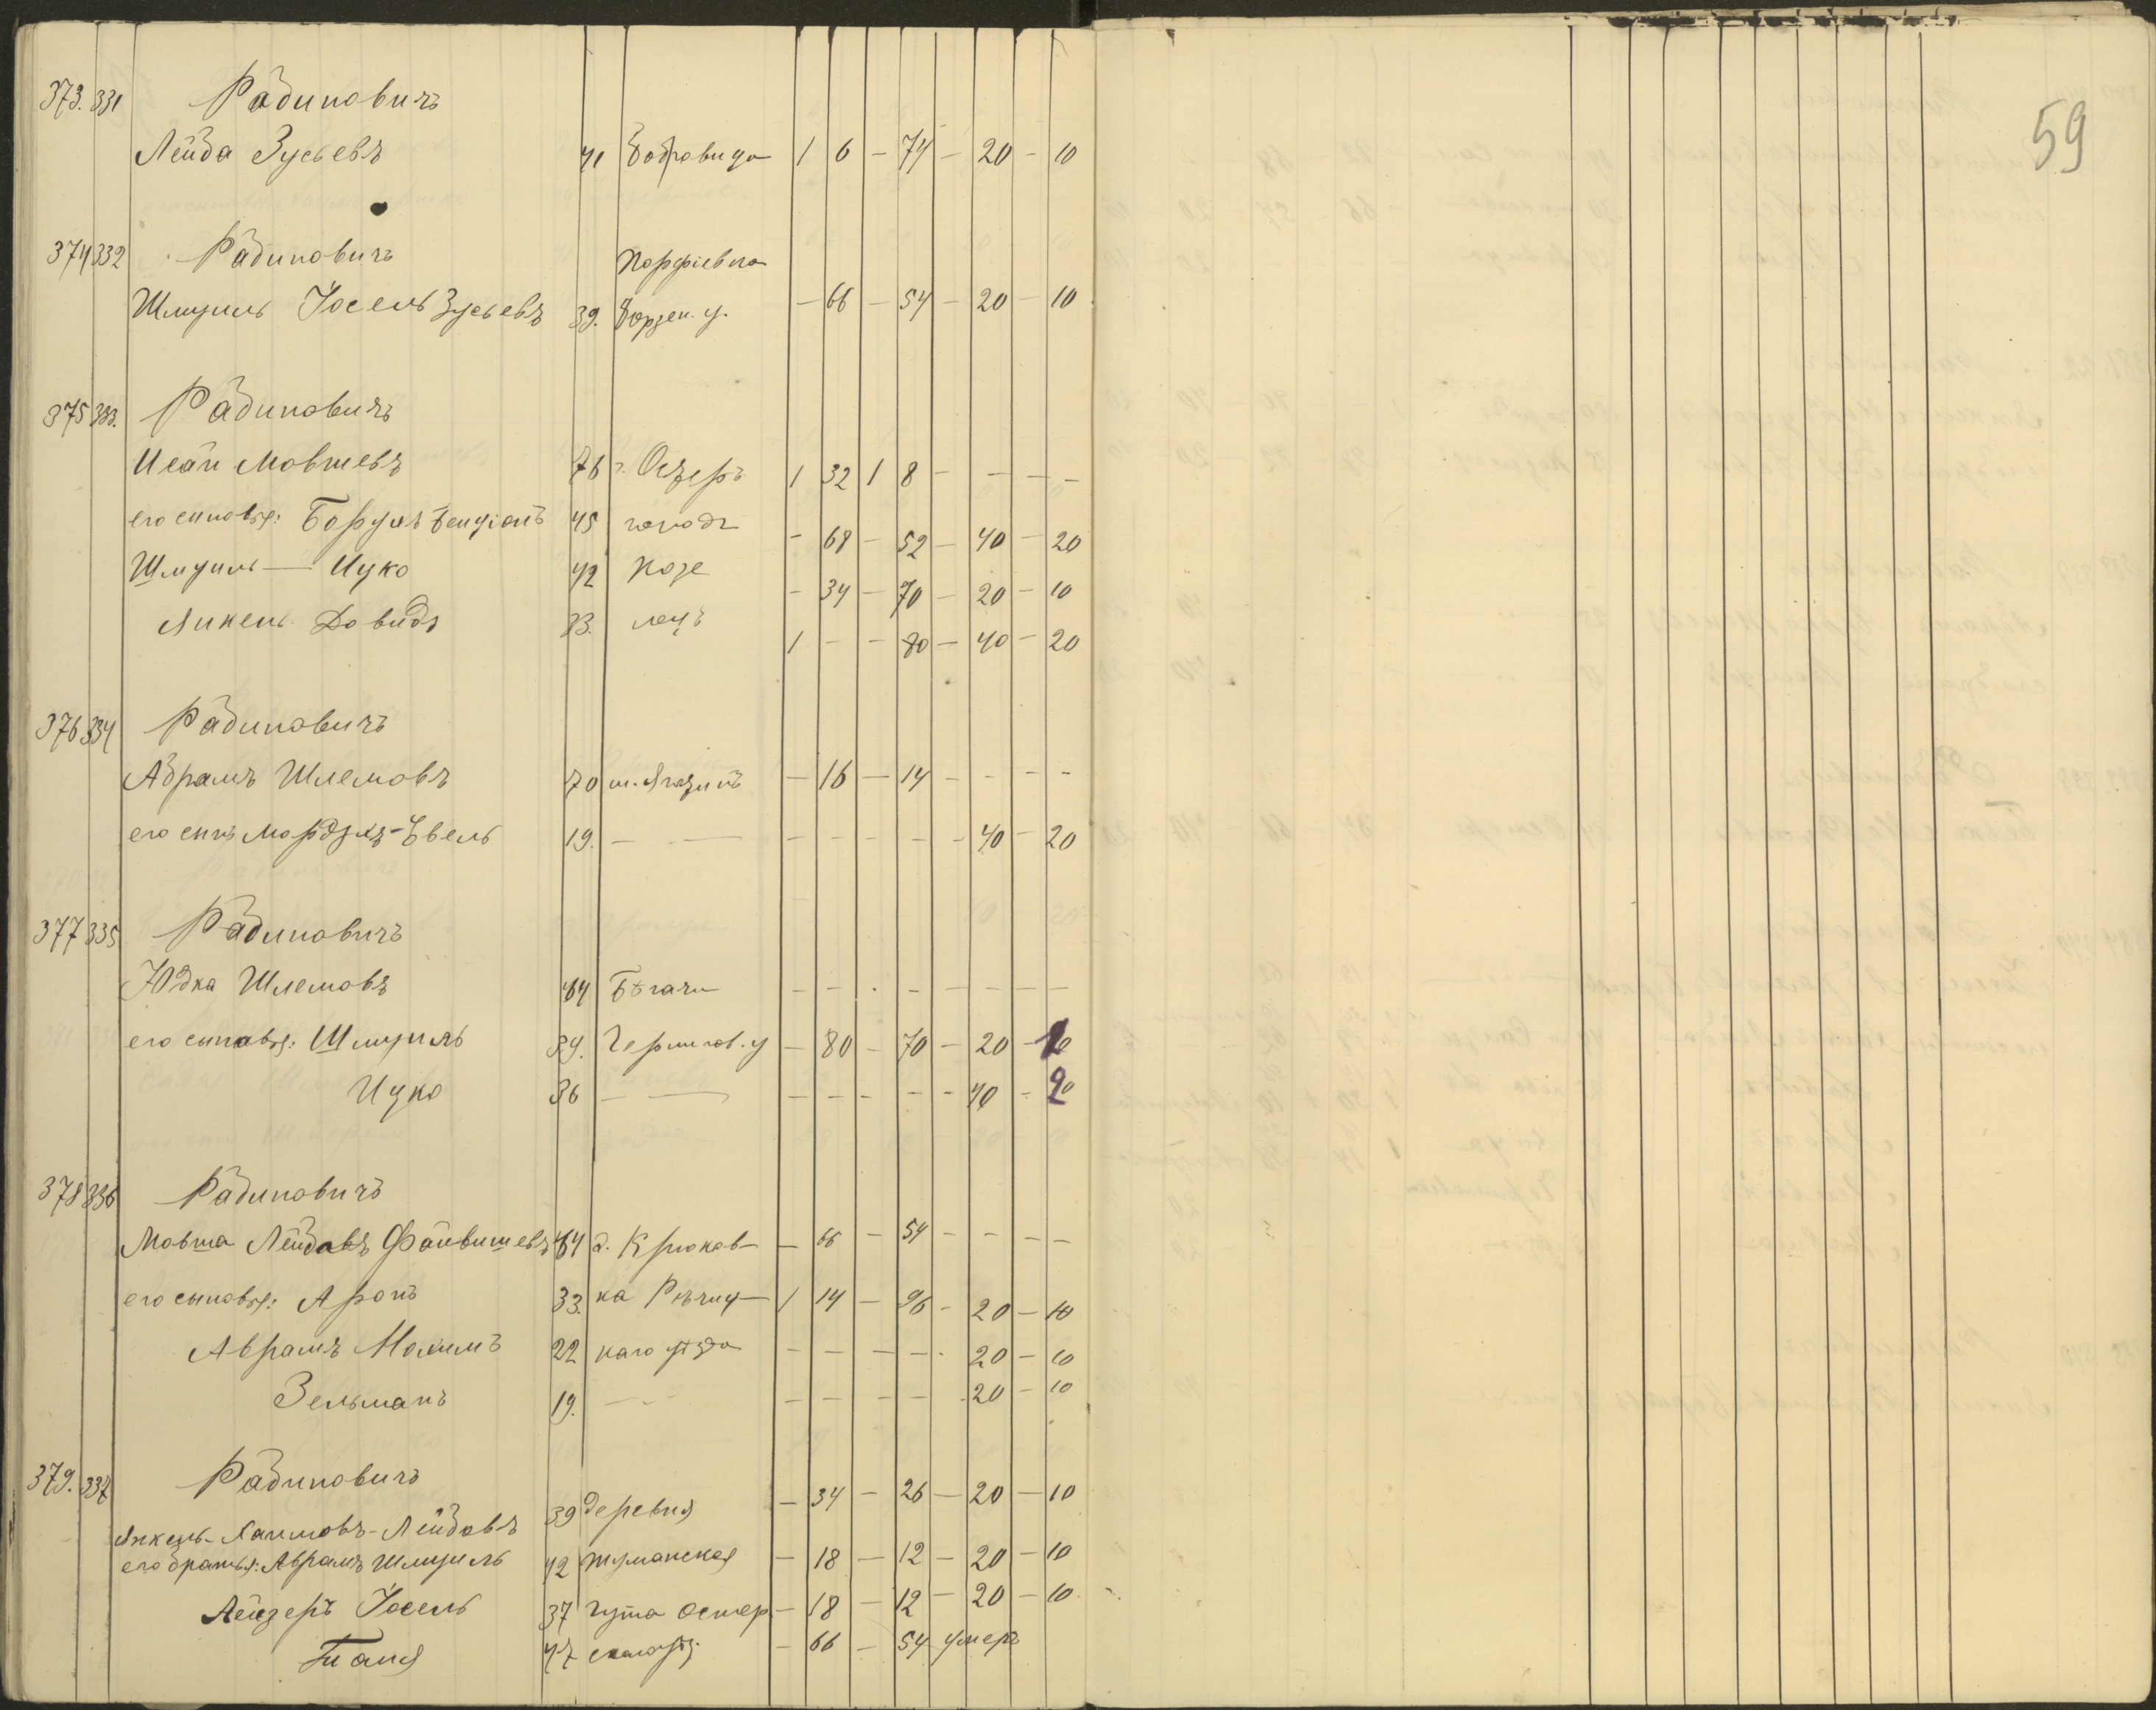 59
373. 331 Рабиновичъ
Лейба Зусьевъ 41 Бобровица 1 6 — 74 — 20 — 10
374 332 Рабиновичъ Порфіевка
Шмуиль Іосель Зусьевъ 39. Борзен. у. — 66 — 54 — 20 — 10
375 333. Рабиновичъ
Исай Мовшевъ 76 Остеръ 1 32 1 8 — — — —
его сыновья: Борухъ Бенціонъ 45 городъ — 68 — 52 — 40 — 20
Шмуиль — Ицко 42 Козе — 34 — 70 — 20 — 10
Янкель Довидъ 33. лецъ 1 — — 80 — 40 — 20
376 334 Рабиновичъ
Абрамъ Шлемовъ 70 — 16 — 14 — — — —
его сынъ Мордухъ- 19. — — — — — — — 40 — 20
377 335 Рабиновичъ
Юдка Шлемовъ 64 Бѣгачи — — . — — — — —
его сыновья: Шмуиль 39. Чернигов. у — 80 — 70 — 20 — 10
Ицко 36 — — — — — — — 40 — 20
378 336 Рабиновичъ
Мовша Лейбовъ Файвишевъ 64 д. Крюков — 66 — 54 — — — —
его сыновья: Аронъ 33. ка Рѣчиц 1 14 — 96 — 20 — 10
Аврамъ Нохимъ 22 каго уѣзда — — — — . 20 — 10
Зельманъ 19. — — — — — — 20 — 10
379. 337 Рабиновичъ
Янкель-Хаимовъ-Лейбовъ 39 деревня — 34 — 26 — 20 — 10
его братья: Аврамъ Шмуиль 42 Туманская — 18 — 12 — 20 — 10
Лейзеръ Іосель 37 Гута Остер — 18 — 12 — 20 — 10
47 скаго уѣз. — 66 — 54 умеръ